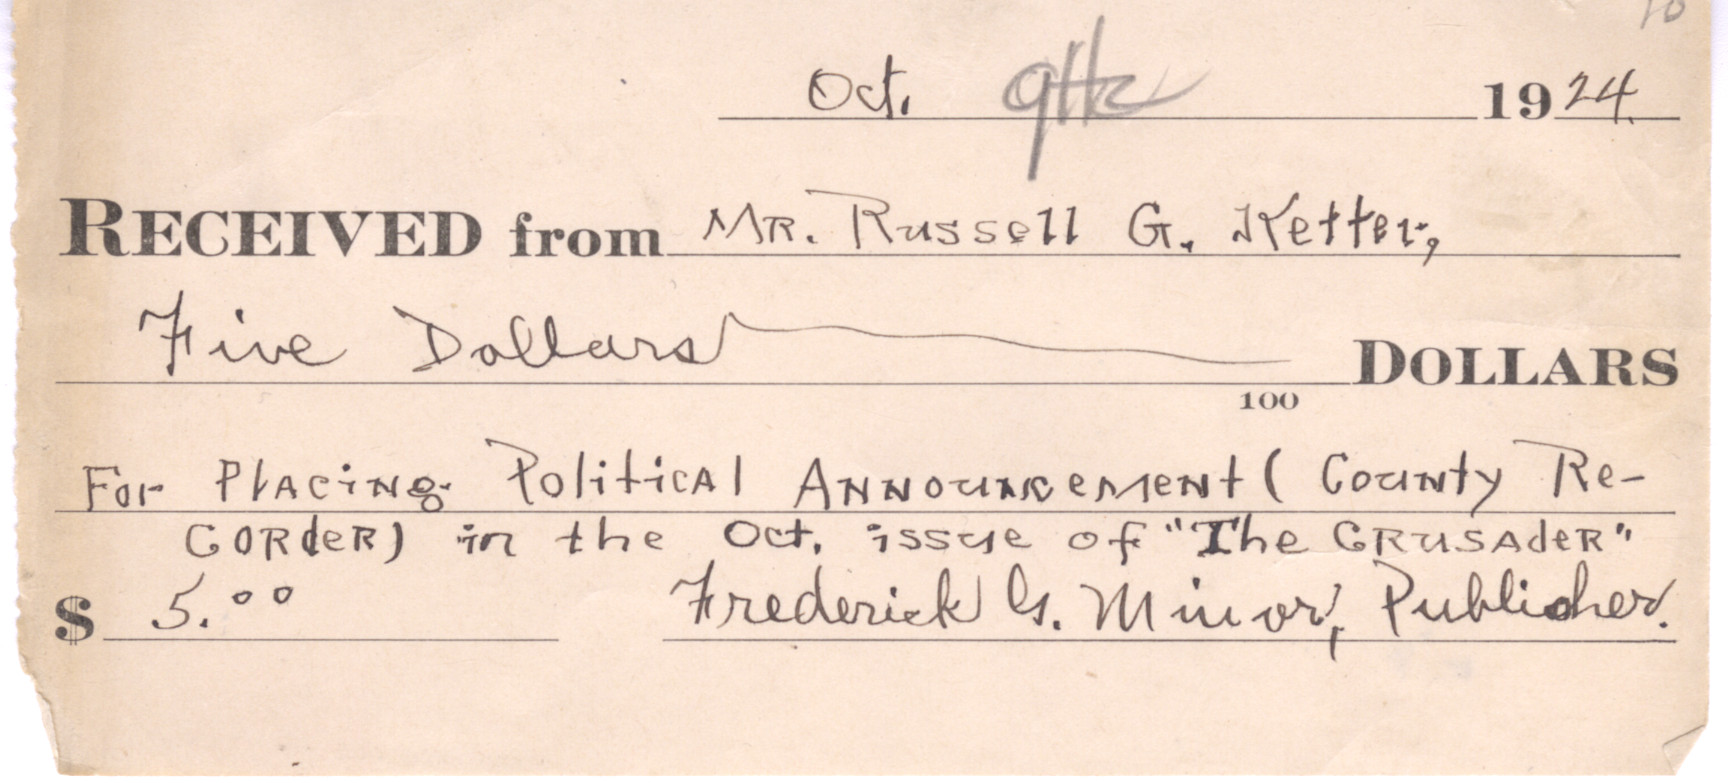 10
Oct. 9th 1924.
RECEIVED from Mr. Russell G. Ketter,
Five Dollars DOLLARS
100
For Placing Political Announcement (County Re-
corder) in the Oct. issue of "The Crusader"
$ 5.00 Frederick G. Minor, Publisher.